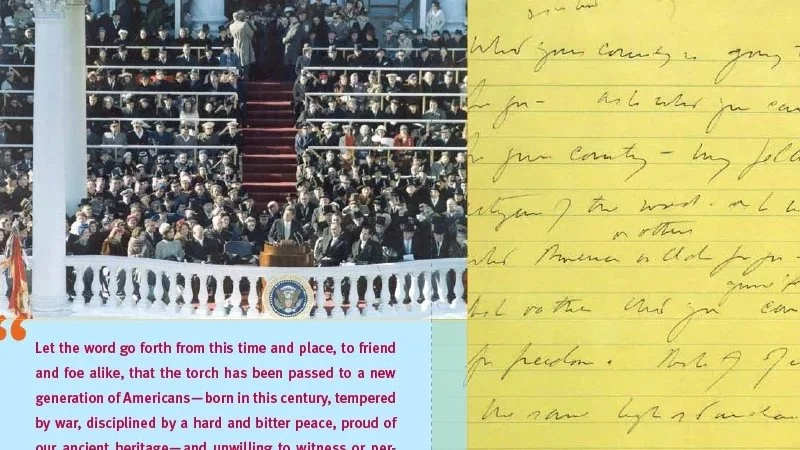 Let the word go forth from this time and place, to friend
and foe alike, that the torch has been passed to a new
generation of Americans—born in this century, tempered
by war, disciplined by a hard and bitter peace, proud of
our ancient heritage—and unwilling to witness or per-
what your country is going
for you – ask what you can
for your country – my
of the world – ask
or others
America will do for you –
but rather what you can
for freedom.
the same high standards